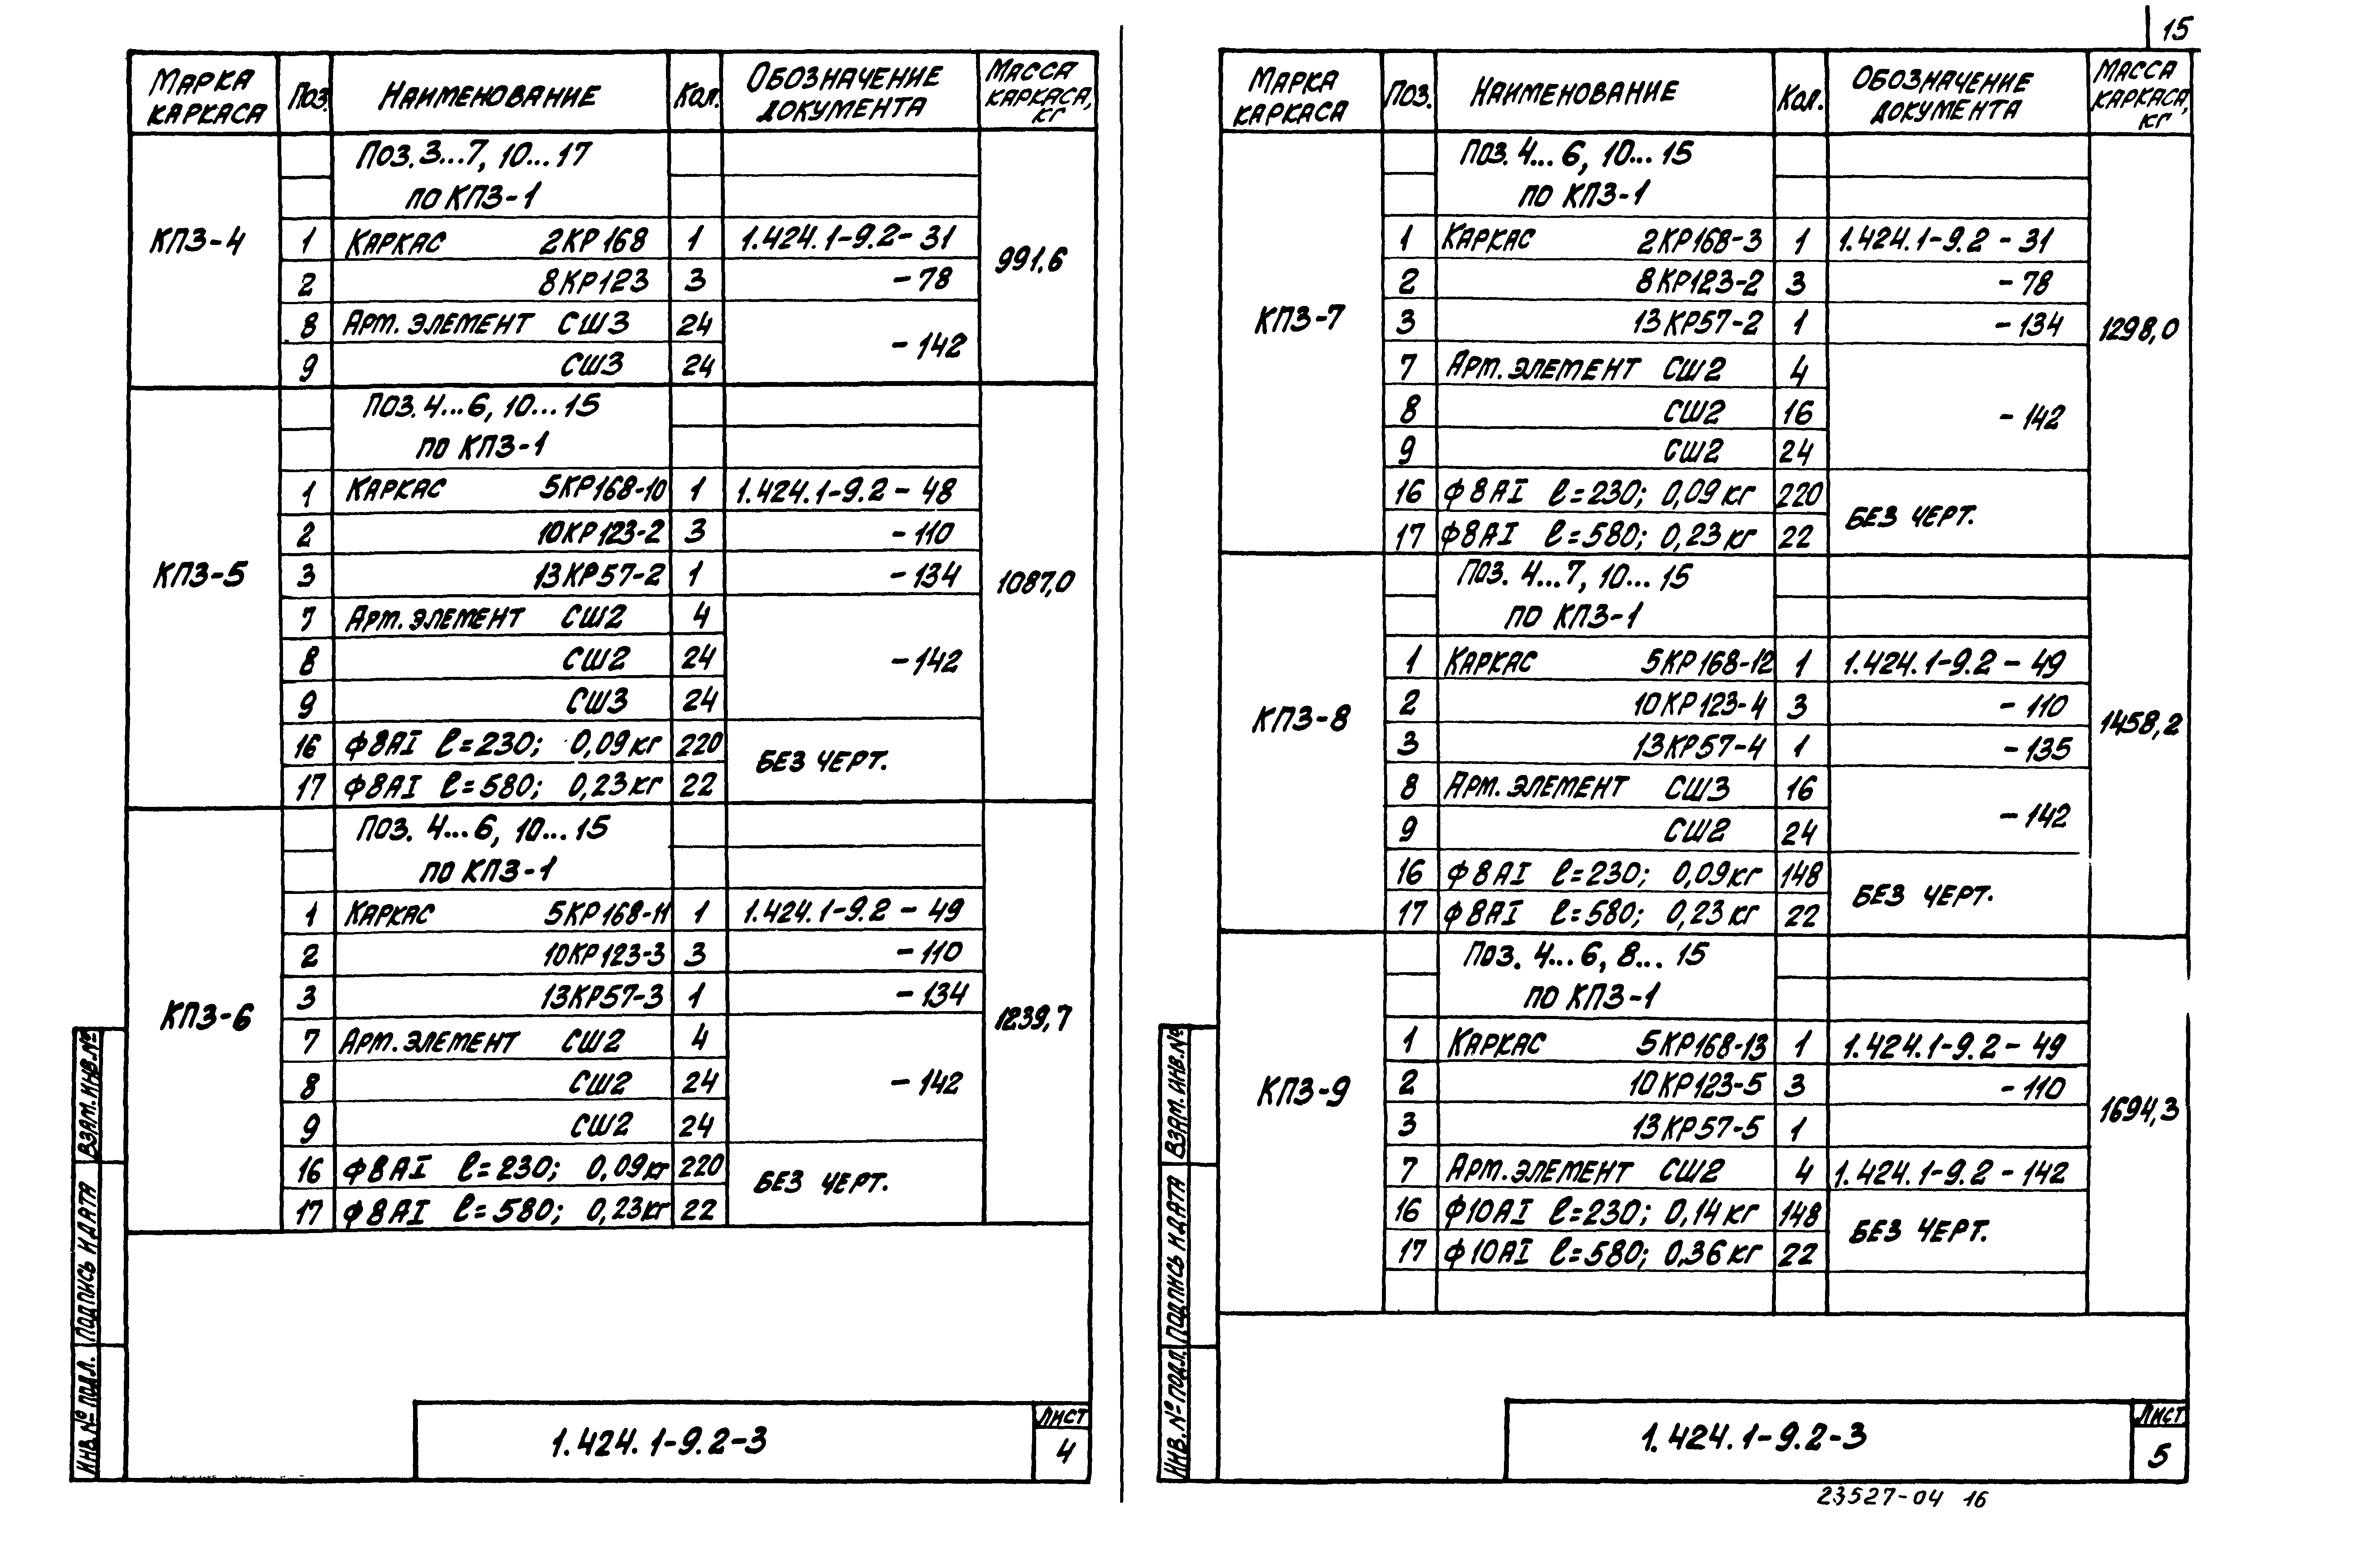 Марка каркаса Поз. Наименование Кол. Обозначение документа Масса каркаса, кг
КП3-4 991,6
Поз. 3...7, 10...17
по КП3-1
1 Каркас 2КР168 1 1.424.1-9.2-31
2 8КР123 3 -78
8 Арм. элемент СШ3 24 -142
9 СШ3 24
КП3-5 1087,0
Поз. 4...6, 10...15
по КП3-1
1 Каркас 5КР168-10 1 1.424.1-9.2-48
2 10КР123-2 3 -110
3 13КР57-2 1 -134
7 Арм. элемент СШ2 4
8 СШ2 24 -142
9 СШ3 24
16 Ф8АI ℓ=230; 0,09кг 220 Без черт.
17 Ф8АI ℓ=580; 0,23кг 22
КП3-6 1239,7
Поз. 4...6, 10...15
по КП3-1
1 Каркас 5КР168-11 1 1.424.1-9.2-49
2 10КР123-3 3 -110
3 13КР57-3 1 -134
7 Арм. элемент СШ2 4
8 СШ2 24 -142
9 СШ2 24
16 Ф8АI ℓ=230; 0,09кг 220 Без черт.
17 Ф8АI ℓ=580; 0,23кг 22
Взам. инв. №
Подпись и дата
Инв. № подл.
1.424.1-9.2-3
Лист
4
15
Марка каркаса Поз. Наименование Кол. Обозначение документа Масса каркаса, кг
КП3-7 1298,0
Поз. 4...6, 10...15
по КП3-1
1 Каркас 2КР168-3 1 1.424.1-9.2-31
2 8КР123-2 3 -78
3 13КР57-2 1 -134
7 Арм. элемент СШ2 4
8 СШ2 16 -142
9 СШ2 24
16 Ф8АI ℓ=230; 0,09кг 220 Без черт.
17 Ф8АI ℓ=580; 0,23кг 22
КП3-8 1458,2
Поз. 4...7, 10...15
по КП3-1
1 Каркас 5КР168-12 1 1.424.1-9.2-49
2 10КР123-4 3 -110
3 13КР57-4 1 -135
8 Арм. элемент СШ3 16 -142
9 СШ2 24
16 Ф8АI ℓ=230; 0,09кг 148 Без черт.
17 Ф8АI ℓ=580; 0,23кг 22
КП3-9 1694,3
Поз. 4...6, 8...15
по КП3-1
1 Каркас 5КР168-13 1 1.424.1-9.2-49
2 10КР123-5 3 -110
3 13КР57-5 1
7 Арм. элемент СШ2 4 1.424.1-9.2-142
16 Ф10АI ℓ=230; 0,14кг 148 Без черт.
17 Ф10АI ℓ=580; 0,36кг 22
Взам. инв. №
Подпись и дата
Инв. № подл.
1.424.1-9.2-3
Лист
5
23527-04 16